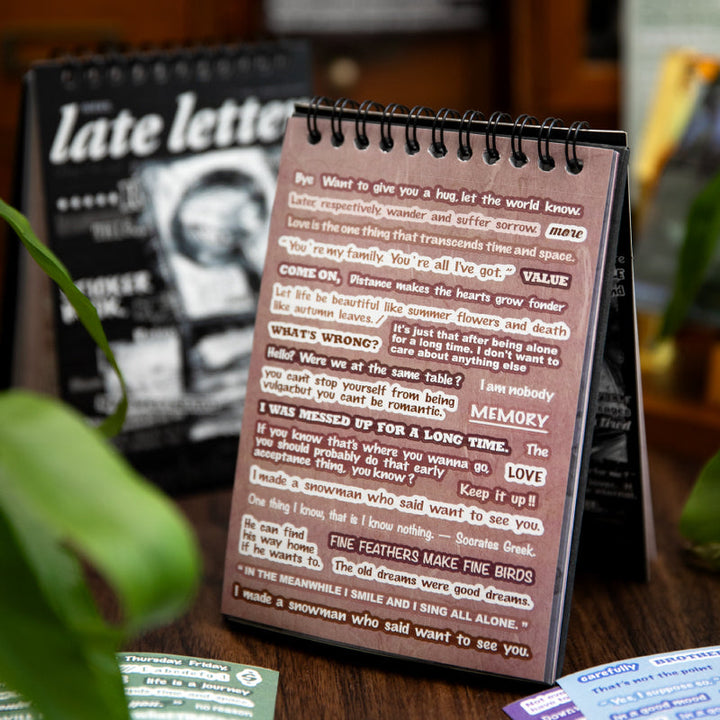 late letter
Bye Want to give you a hug, let the world know.
Later, respectively, wander and suffer sorrow. more
Love is the one thing that transcends time and space.
"You're my family. You're all I've got." VALUE
COME ON, Distance makes the hearts grow fonder
Let life be beautiful like summer flowers and death
like autumn leaves./
WHAT'S WRONG?
It's just that after being alone
for a long time. I don't want to
care about anything else
Hello? Were we at the same table?
I am nobody
you can't stop yourself from being
vulgarbut you cant be romantic.
MEMORY
I WAS MESSED UP FOR A LONG TIME. The
If you know that's where you wanna go,
you should probably do that early
acceptance thing, you know?
LOVE
Keep it up!!
I made a snowman who said want to see you.
One thing I know, that is I know nothing. — Socrates Greek.
He can find
his way home
if he wants to.
FINE FEATHERS MAKE FINE BIRDS
The old dreams were good dreams.
"IN THE MEANWHILE I SMILE AND I SING ALL ALONE."
I made a snowman who said want to see you.
Thursday. Friday.
life is a journey
no reason
carefully
That's not the point
Yes, I suppose so.
good mood